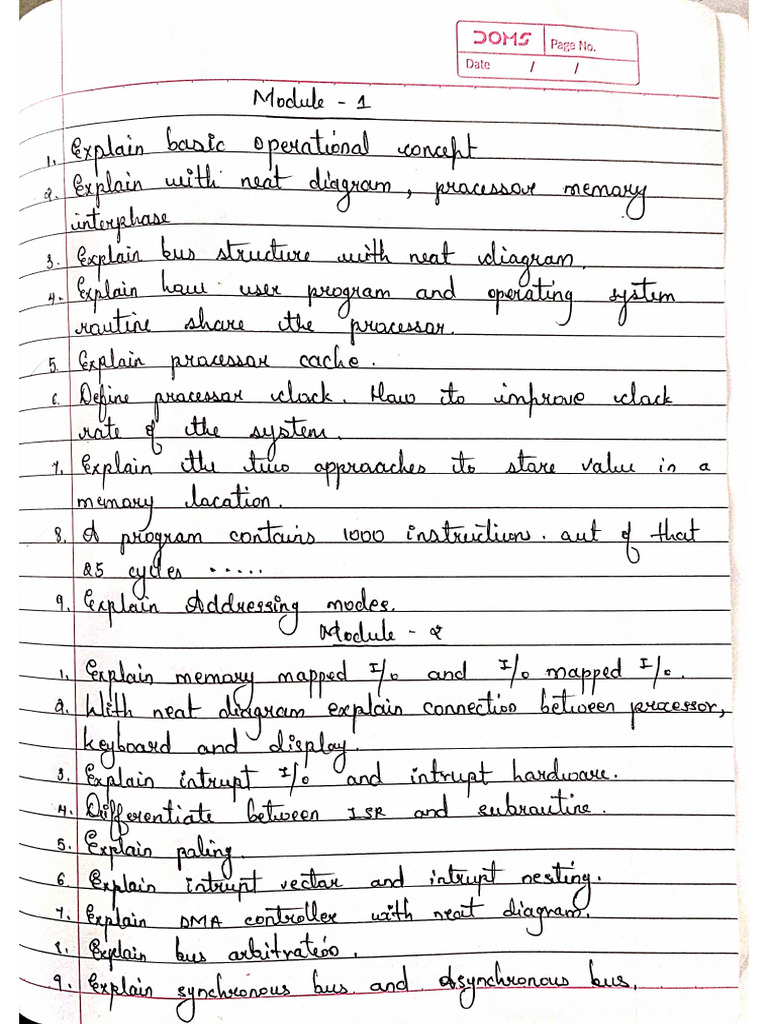 DOMS Page No.
Date / /
Module - 1
1. Explain basic operational concept
2. Explain with neat diagram, processor memory
interphase
3. Explain bus structure with neat diagram.
4. Explain how user program and operating system
routine share the processor.
5. Explain processor cache.
6. Define processor clock. How to improve clock
rate of the system.
7. Explain the two approaches to store value in a
memory location.
8. A program contains 1000 instruction. out of that
25 cycles .....
9. Explain Addressing modes.
Module - 2
1. Explain memory mapped I/o and I/o mapped I/o.
2. With neat diagram explain connection between processor,
keyboard and display.
3. Explain intrupt I/o and intrupt hardware.
4. Differentiate between ISR and subroutine.
5. Explain poling.
6. Explain intrupt vector and intrupt nesting.
7. Explain DMA controller with neat diagram.
8. Explain bus arbitration.
9. Explain synchronous bus and Asynchronous bus.